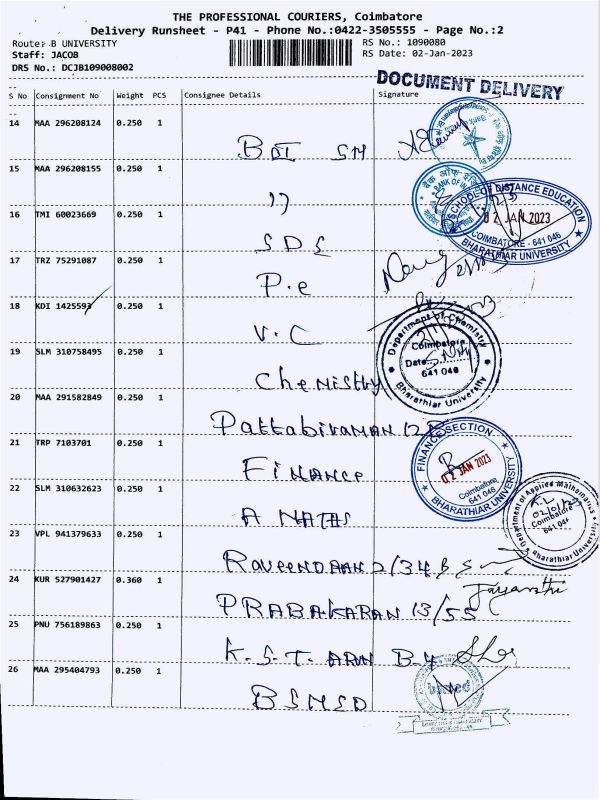 THE PROFESSIONAL COURIERS, Coimbatore
Delivery Runsheet - P41 - Phone No.:0422-3505555 - Page No.:2
Route: B UNIVERSITY
RS No.: 1090080
Staff: JACOB
RS Date: 02-Jan-2023
DRS No.: DCJB109008002
DOCUMENT DELIVERY
S No Consignment No Weight PCS Consignee Details Signature
14 MAA 296208124 0.250 1
15 MAA 296208155 0.250 1
बैंक ऑफ
BANK OF
SCHOOL OF DISTANCE EDUCATION
02 JAN 2023
COIMBATORE - 641 046
BHARATHIAR UNIVERSITY
16 TMI 60023669 0.250 1
SDS
17 TRZ 75291087 0.250 1
P.e
18 KDI 1425593 0.250 1
V.C
Department of Chemistry
Coimbatore
Date
641 046
Bharathiar University
19 SLM 310758495 0.250 1
Chemistry
20 MAA 291582849 0.250 1
Pattabiraman
21 TRP 7103701 0.250 1
Finance
FINANCE SECTION
02 JAN 2023
Coimbatore
641 046
BHARATHIAR UNIVERSITY
22 SLM 310632623 0.250 1
A MATHS
Department of Applied Mathematics
02/01/23
Coimbatore
641 046
Bharathiar University
23 VPL 941379633 0.250 1
2/34
24 KUR 527901427 0.360 1
PRABAKARAN 13/55
Jayanthi
25 PNU 756189863 0.250 1
K.S.T. ARUN B-4
26 MAA 295404793 0.250 1
BSMED
bsmed